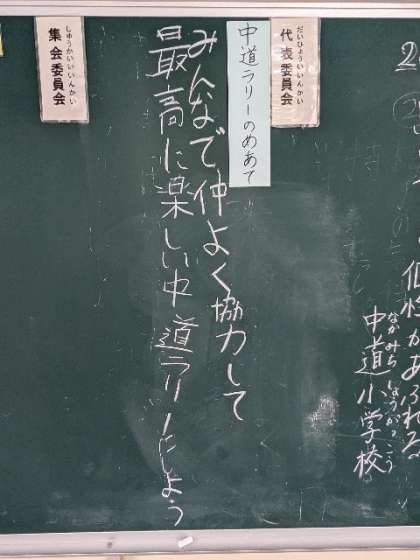 2
個性があふれる
中道小学校
なかみちしょうがっこう
代表委員会
だいひょういいんかい
中道ラリーのめあて
みんなで仲よく協力して
最高に楽しい中道ラリーにしよう
集会委員会
しゅうかいいいんかい